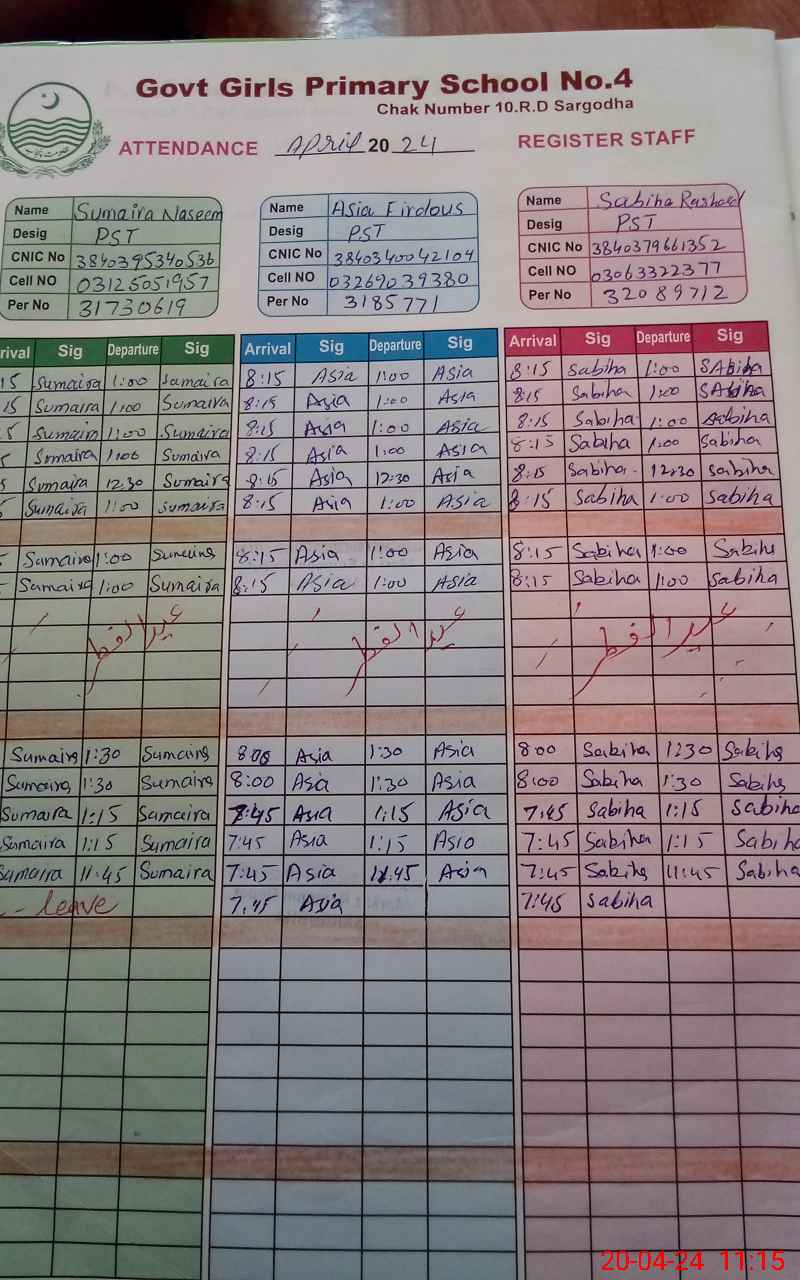 Govt Girls Primary School No.4
Chak Number 10.R.D Sargodha
ATTENDANCE April 20 24 REGISTER STAFF
Name Sumaira Naseem Name Asia Firdous Name Sabiha Rasheed
Desig PST Desig PST Desig PST
CNIC No 3840395340536 CNIC No 3840340042104 CNIC No 3840379661352
Cell NO 03125051957 Cell NO 03269039380 Cell NO 03063322377
Per No 31730619 Per No 3185771 Per No 32089712
rival Sig Departure Sig Arrival Sig Departure Sig Arrival Sig Departure Sig
15 Sumaira 1:00 Sumaira 8:15 Asia 1:00 Asia 8:15 Sabiha 1:00 SAbiha
15 Sumaira 1:00 Sumaira 8:15 Asia 1:00 Asia 8:15 Sabiha 1:00 SAbiha
5 Sumaira 1:00 Sumaira 8:15 Asia 1:00 Asia 8:15 Sabiha 1:00 Sabiha
5 Sumaira 1:00 Sumaira 8:15 Asia 1:00 Asia 8:15 Sabiha 1:00 Sabiha
5 Sumaira 12:30 Sumaira 8:15 Asia 12:30 Asia 8:15 Sabiha 12:30 Sabiha
5 Sumaira 1:00 Sumaira 8:15 Asia 1:00 Asia 8:15 Sabiha 1:00 Sabiha
Sumaira 1:00 Sumaira 8:15 Asia 1:00 Asia 8:15 Sabiha 1:00 Sabiha
Sumaira 1:00 Sumaira 8:15 Asia 1:00 Asia 8:15 Sabiha 1:00 Sabiha
عید الفطر عید الفطر عید الفطر
Sumaira 1:30 Sumaira 8:00 Asia 1:30 Asia 8:00 Sabiha 1:30 Sabiha
Sumaira 1:30 Sumaira 8:00 Asia 1:30 Asia 8:00 Sabiha 1:30 Sabiha
Sumaira 1:15 Sumaira 7:45 Asia 1:15 Asia 7:45 Sabiha 1:15 Sabiha
Sumaira 1:15 Sumaira 7:45 Asia 1:15 Asia 7:45 Sabiha 1:15 Sabiha
Sumaira 11:45 Sumaira 7:45 Asia 11:45 Asia 7:45 Sabiha 11:45 Sabiha
leave 7:45 Asia 7:45 Sabiha
20-04-24 11:15